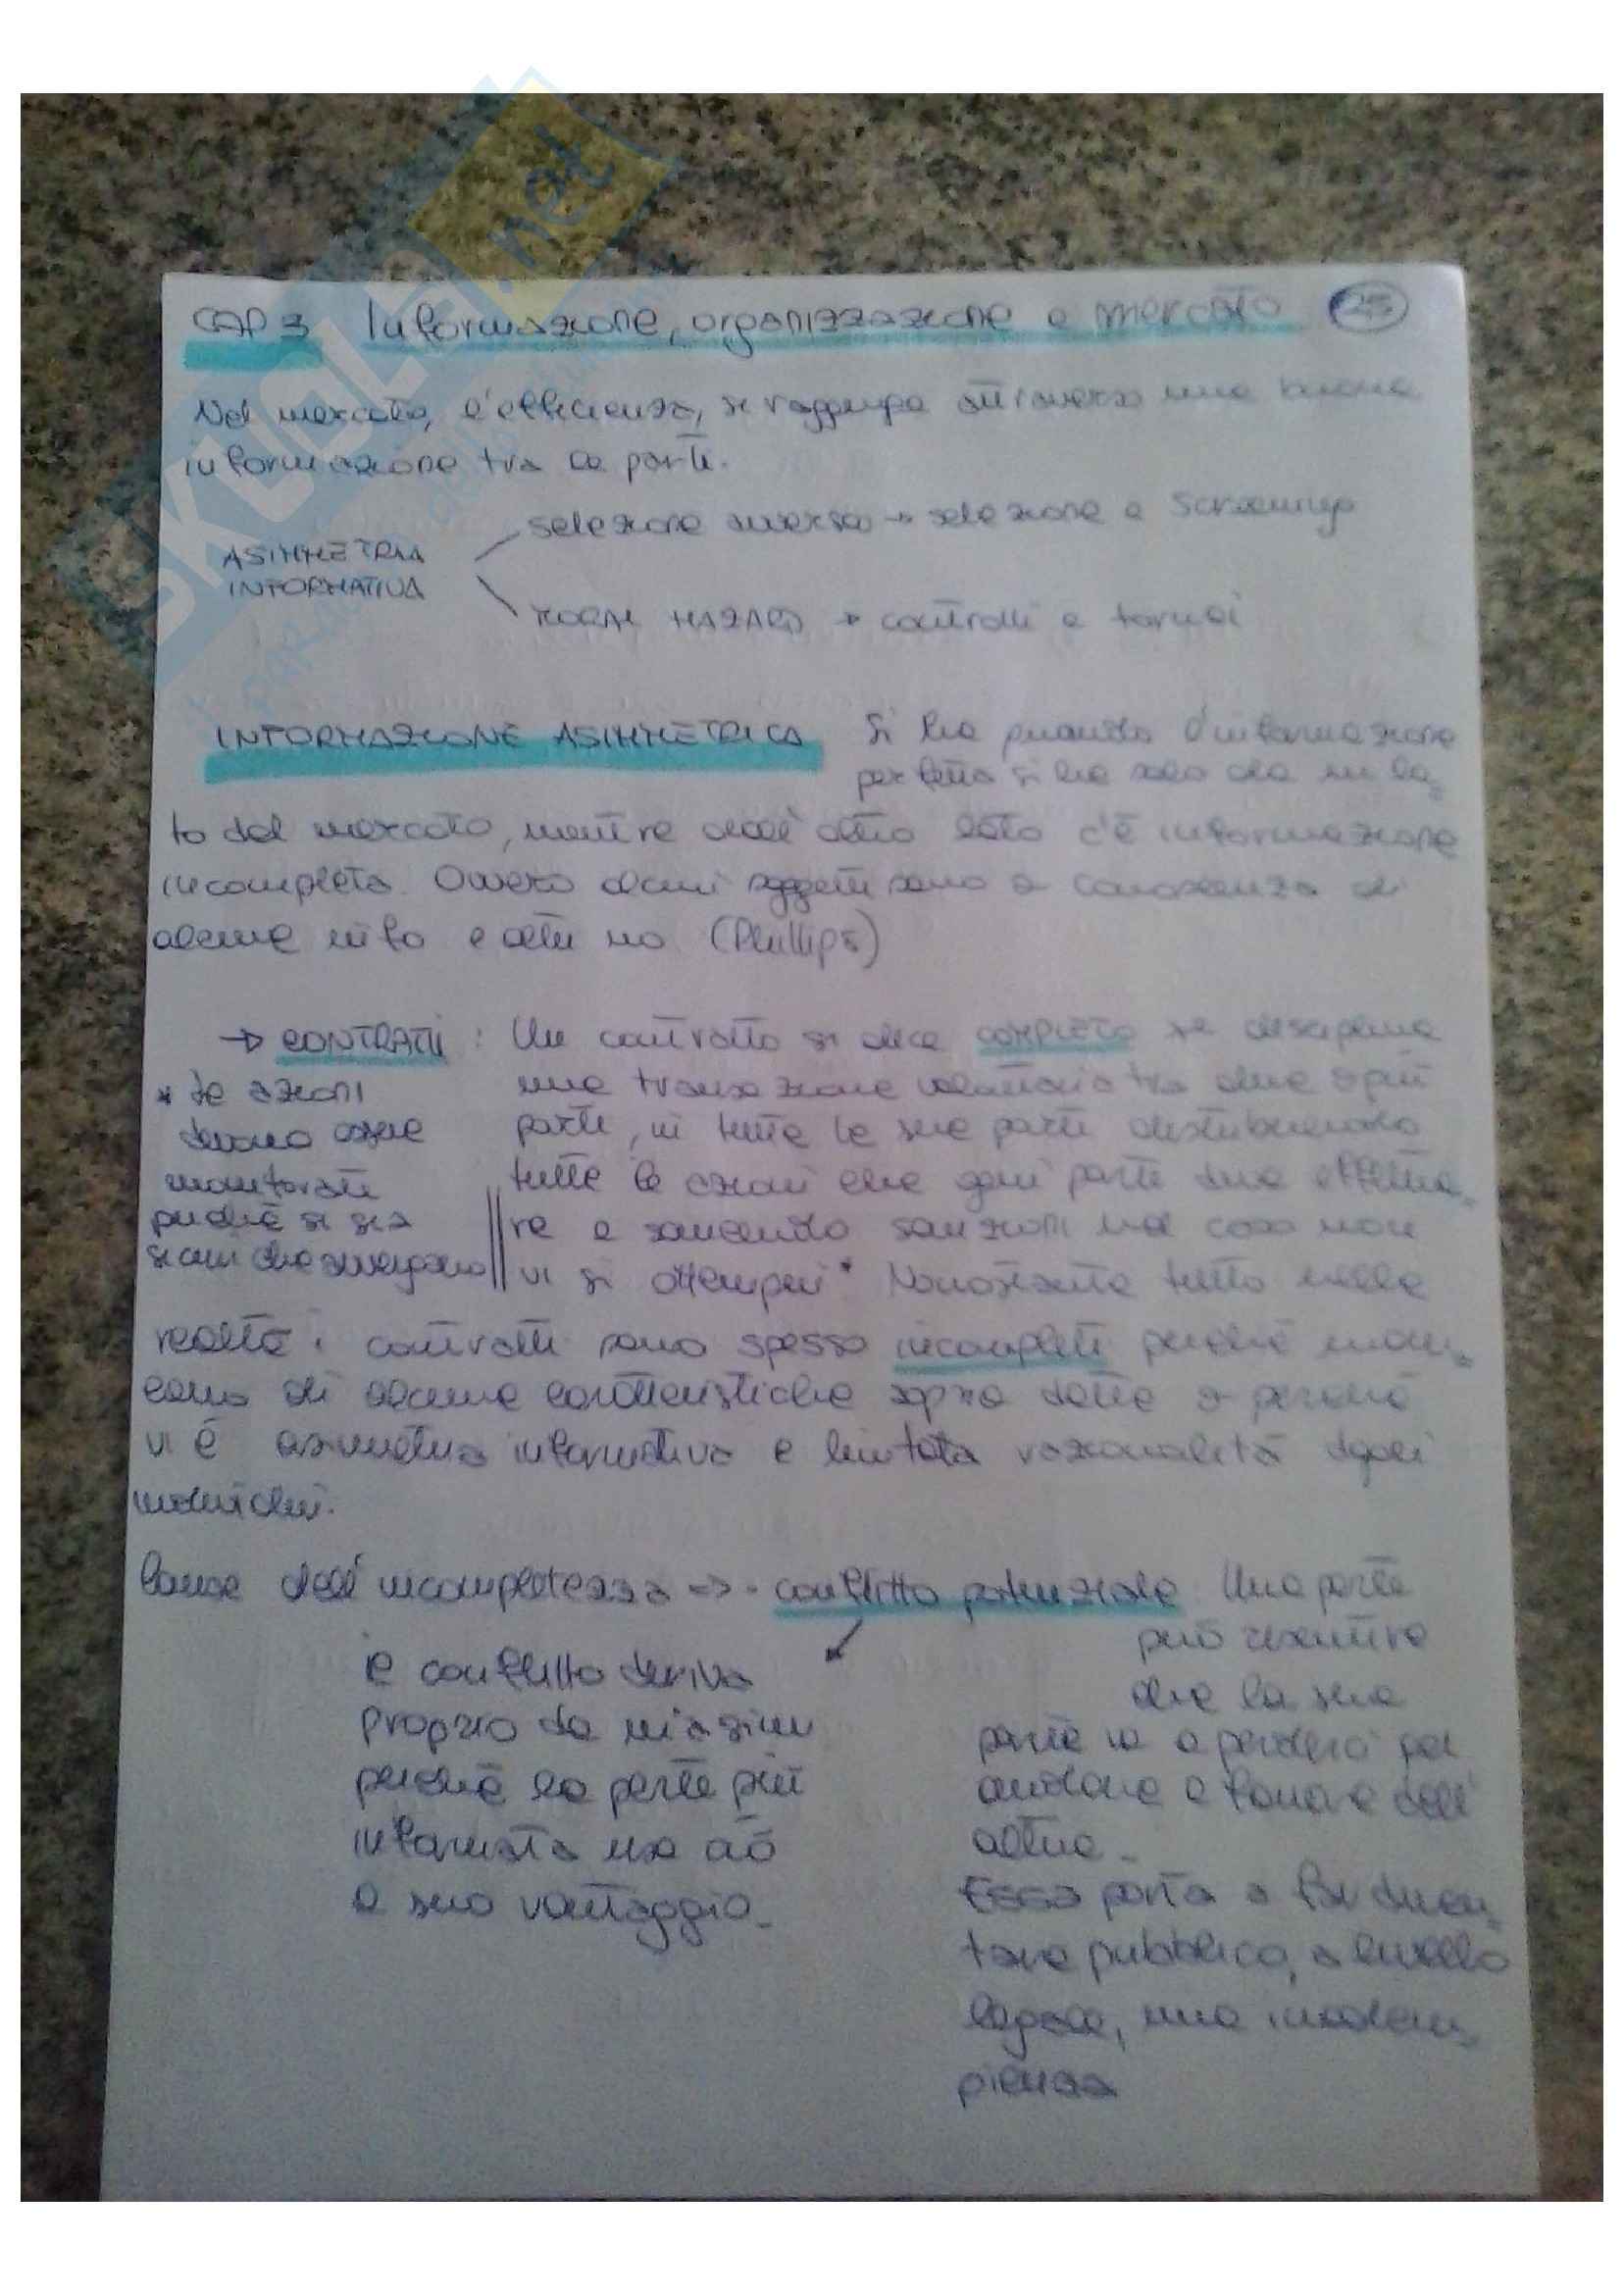 CAP 3 Informazione, organizzazione e mercato 25
Nel mercato, l'efficienza, si raggiunge attraverso una buona
informazione tra le parti.
selezione avversa → selezione e Screening
ASIMMETRIA
INFORMATIVA
MORAL HAZARD → controlli e tornei
INFORMAZIONE ASIMMETRICA Si ha quando l'informazione
perfetta si ha solo da un la=
to del mercato, mentre dall'altro lato c'è informazione
incompleta. Ovvero alcuni soggetti sono a conoscenza di
alcune info e altri no (Phillips)
→ CONTRATTI : Un contratto si dice COMPLETO se disciplina
una transazione volontaria tra due o più
parti, in tutte le sue parti distribuendo
tutte le azioni che ogni parte deve effettua=
re e sancendo sanzioni nel caso non
vi si ottemperi* Nonostante tutto nella
* le azioni
devono essere
monitorate
perchè si sia
sicuri che avvengano
realtà i contratti sono spesso incompleti perchè man=
cano di alcune caratteristiche sopra dette o perchè
vi è asimmetria informativa e limitata razionalità degli
individui.
Cause dell'incompletezza => - conflitto potenziale Una parte
può
che la sua
parte va a perdersi per
andare a favore dell'
altra.
Essa porta a far diven=
tare pubblica, a livello
legale, una inadem=
pienza
il conflitto deriva
proprio da
perchè la parte più
informata usa ciò
a suo vantaggio.
SKUOLA.net